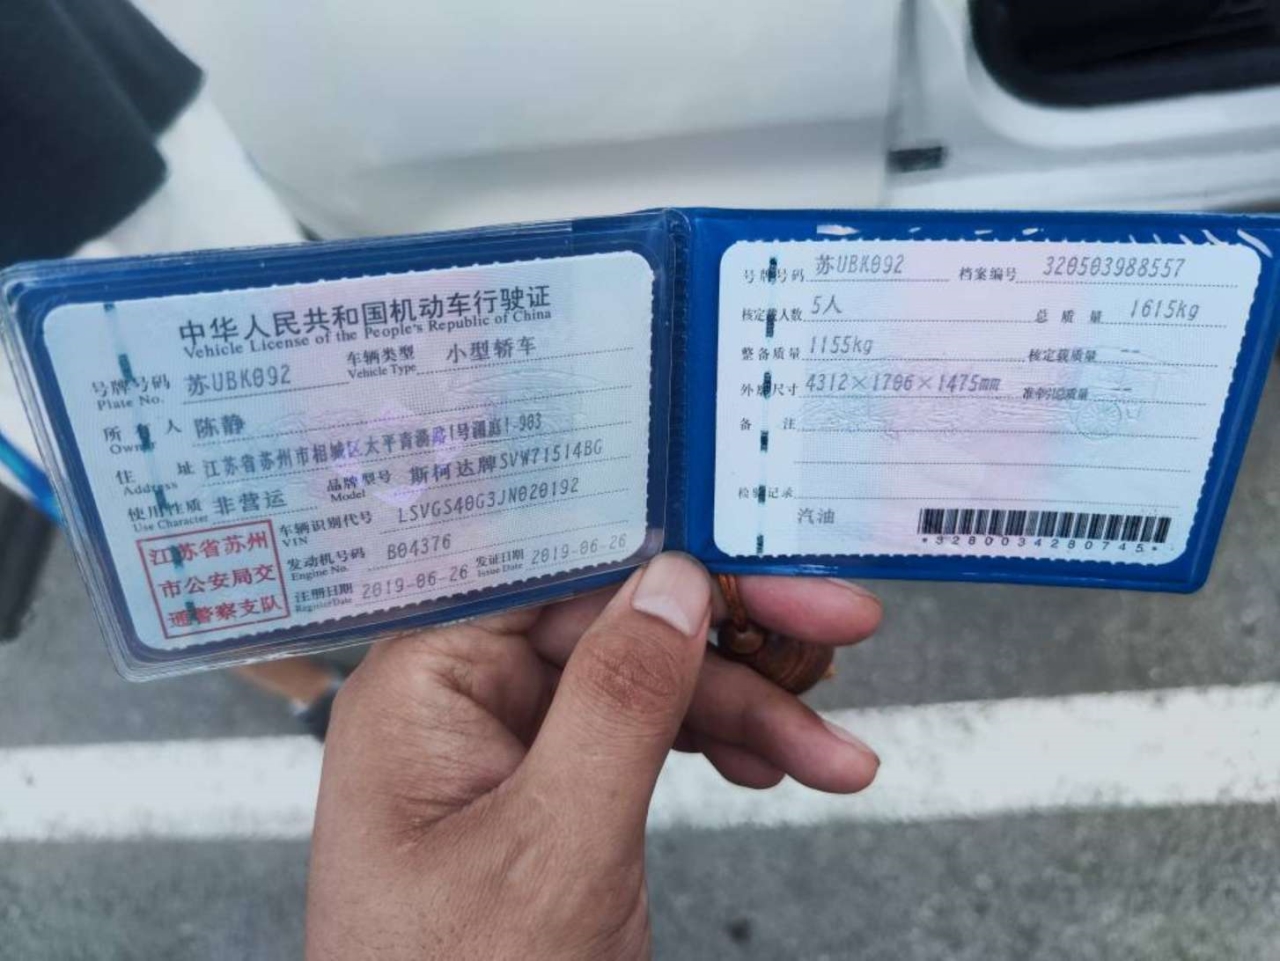 中华人民共和国机动车行驶证
Vehicle License of the People's Republic of China
号牌号码 苏UBK092 车辆类型 小型轿车
Plate No. Vehicle Type
所有人 陈静
Owner
住址 江苏省苏州市相城区太平青漪路1号澜庭1-903
Address
使用性质 非营运 品牌型号 斯柯达牌SVW71514BG
Use Character Model
江苏省苏州
市公安局交
通警察支队
车辆识别代号 LSVGS40G3JN020192
VIN
发动机号码 B04376
Engine No.
注册日期 2019-06-26 发证日期 2019-06-26
Register Date Issue Date
号牌号码 苏UBK092 档案编号 320503988557
核定载人数 5人 总质量 1615kg
整备质量 1155kg 核定载质量 --
外廓尺寸 4312×1706×1475mm 准牵引总质量 --
备注
检验记录
汽油
*3280034280745*